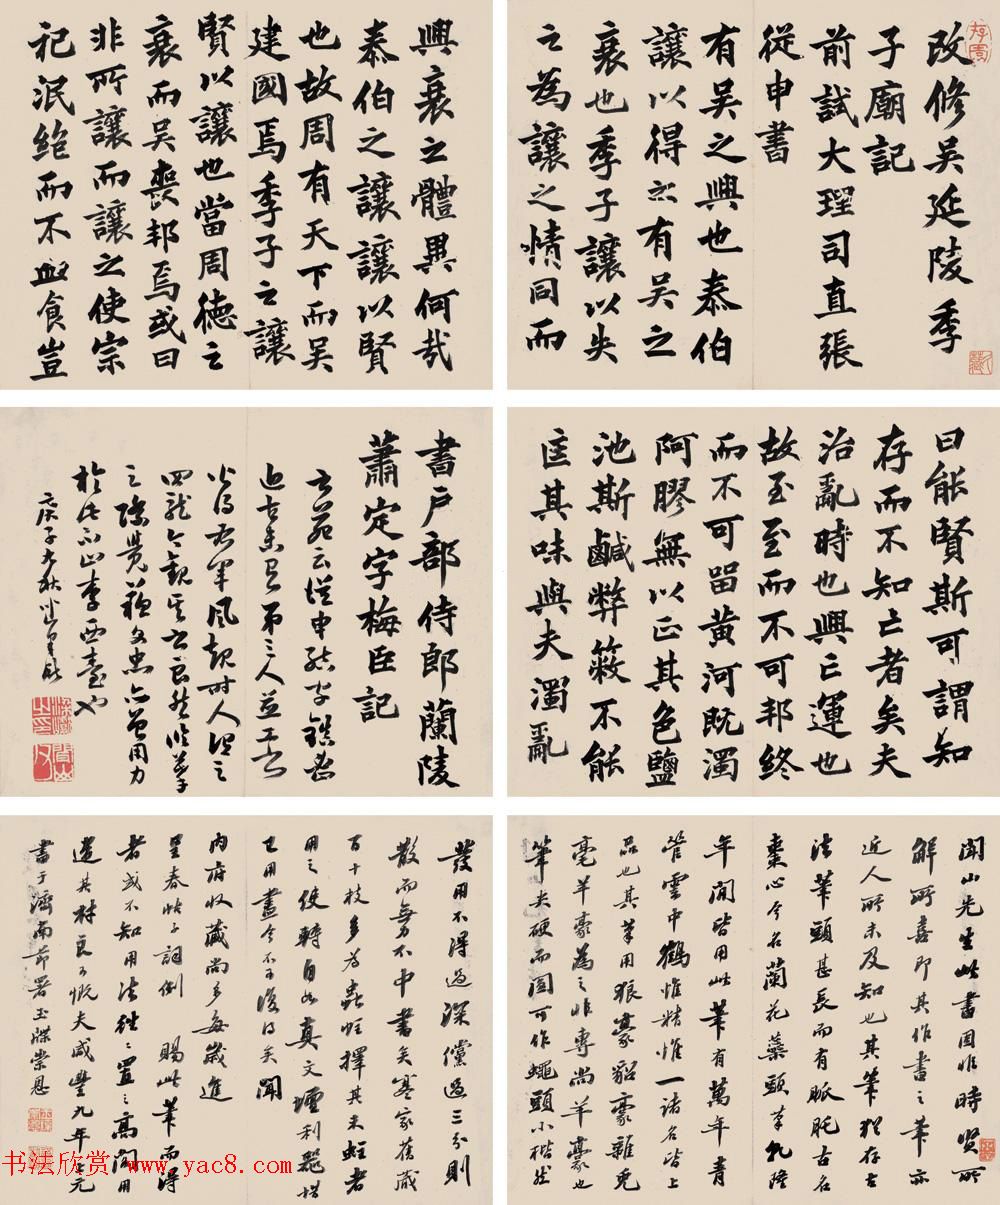 改修吴延陵季
子廟記
前試大理司直張
從申書
有吴之興也泰伯
讓以得之有吴之
衰也季子讓以失
之為讓之情同而
興衰之體異何哉
泰伯之讓讓以賢
也故周有天下而吴
建國焉季子之讓
賢以讓也當周德之
衰而吴喪邦焉或曰
非所讓而讓之使宗
祀泯絶而不血食豈
曰能賢斯可謂知
存而不知亡者矣夫
治亂時也興亡運也
故至至而不可邦終
而不可留黄河既濁
阿膠無以正其色鹽
池斯鹹弊簌不能
匡其味與夫濁亂
書户部侍郎蘭陵
蕭定字梅臣記
書苑云從申結字緊密
近古未有弟三人並工書
皆得右軍風規時人謂之
四龍今觀其書良然
之際覺蘇文忠亦曾用力
於此不止李西臺也
庚子九秋
聞山先生此書固非時賢所
解所喜即其作書之筆亦
近人所未及知也其筆猶存古
法筆頭甚長而有脈肫古名
棗心今名蘭花蘂頭草九陸
年間皆用此筆有萬年青
管雲中鶴惟精惟一諸名皆上
品也其筆用狼豪貂豪雜兔
毫羊豪為之非專尚羊豪也
筆尖硬而圓可作蠅頭小楷然
發用不得過深儻過三分則
散而無不中書矣寒家舊蔵
百十枝多為蟲蛀擇其未蛀者
用之使轉自如真文壇利器惜
已用盡今不可復得矣聞
内府收蔵尚多每歲進
呈春帖子詞例 賜此筆而得
者或不知用法往往置之高閣用
違其材良可慨夫咸豐九年上元
書于濟南節署玉牒崇恩
书法欣赏 www.yac8.com